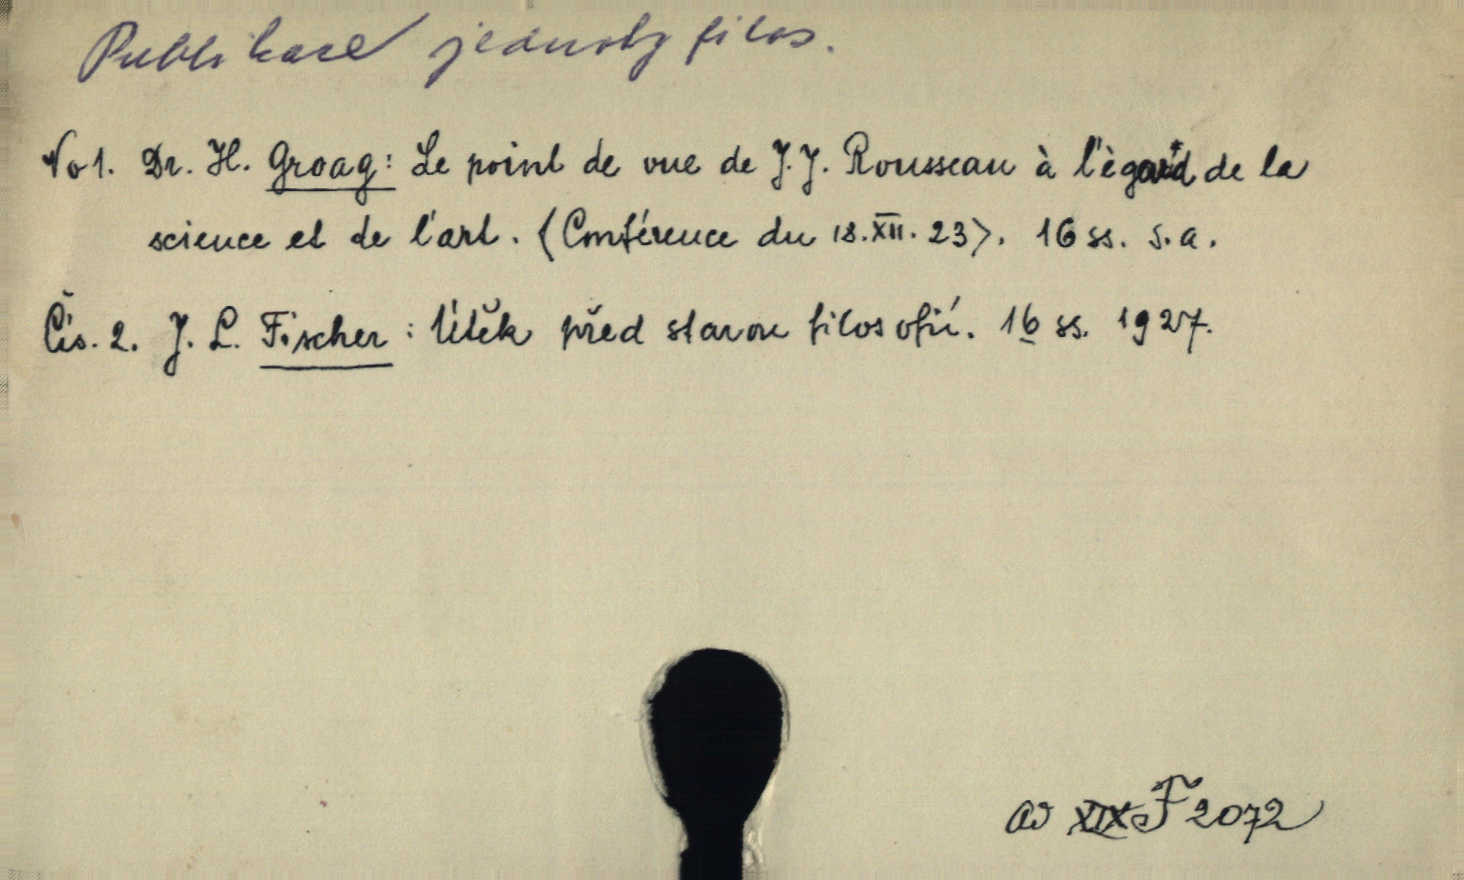 Publikace jednoty filos.
No 1. Dr. H. Groag: Le point de vue de J. J. Rousseau à l'ègard de la
science et de l'art. (Conférence du 18.XII.23). 16 ss. s.a.
Čís. 2. J. L. Fischer: Útěk před slavou filosofií. 16 ss. 1927.
ad XIX F 2072